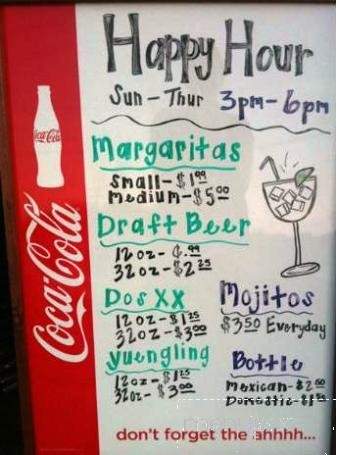 Happy Hour
Sun - Thur 3pm - 6pm
Margaritas
Small - $1.99
medium - $5.00
Draft Beer
12oz - ¢.99
32oz - $2.25
Dos XX
12oz - $1.25
32oz - $3.00
Mojitos
$3.50 Everyday
yuengling
12oz - $1.25
32oz - $3.00
Bottle
Mexican - $2.50
Domestic -
don't forget the ahhhh...
Coca-Cola
Coca-Cola